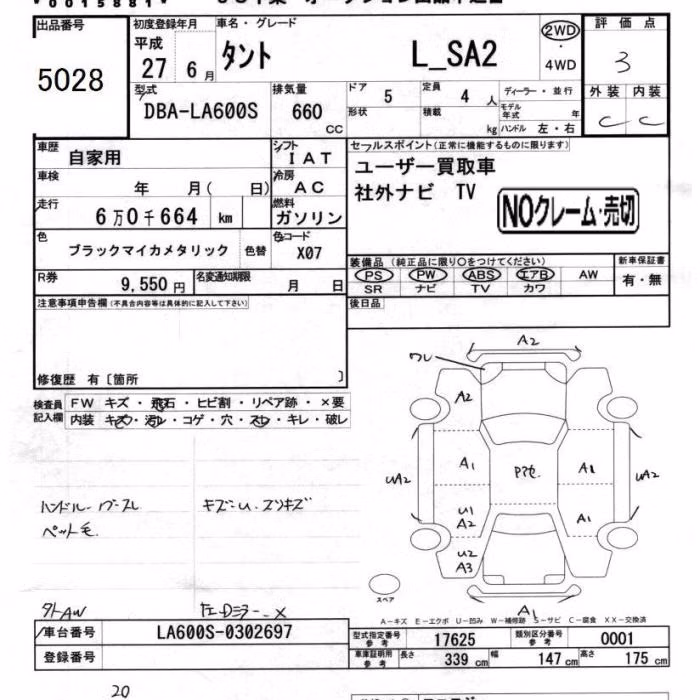 出品番号
5028
初度登録年月
車名・グレード
平成
27 6月
タント L_SA2
2WD
・
4WD
評価点
3
外装 内装
C C
型式
DBA-LA600S
排気量
660
CC
ドア
5
定員
4人
形状
積載
kg
ディーラー・並行
モデル年式 年
ハンドル 左・右
車歴
自家用
シフト
IAT
車検
年 月( 日)
冷房
AC
走行
6万0千664 km
燃料
ガソリン
色
ブラックマイカメタリック
色替
色コード
X07
R券
9,550円
名変通知期限
月 日
セールスポイント(正常に機能するものに限ります)
ユーザー買取車
社外ナビ TV
NOクレーム・売切
装備品 (純正品に限り○をつけてください)
PS PW ABS エアB AW
SR ナビ TV カワ
新車保証書
有・無
後日品
注意事項申告欄(不具合内容等は具体的に記入して下さい)
修復歴 有〔箇所 〕
検査員
記入欄
FW キズ・飛石・ヒビ割・リペア跡・×要
内装 キズ・汚レ・コゲ・穴・スレ・キレ・破レ
ペット毛
外AW
A2
ワレ
A2
A1
A1
UA2
UA2
U1
A2
A1
U2
A3
A1
スペア
A-キズ E-エクボ U-凹み W-補修跡 S-サビ C-腐食 XX-交換済
車台番号
LA600S-0302697
登録番号
型式指定番号
参考
17625
類別区分番号
参考
0001
車庫証明用
参考
長さ
339 cm
幅
147 cm
高さ
175 cm
20